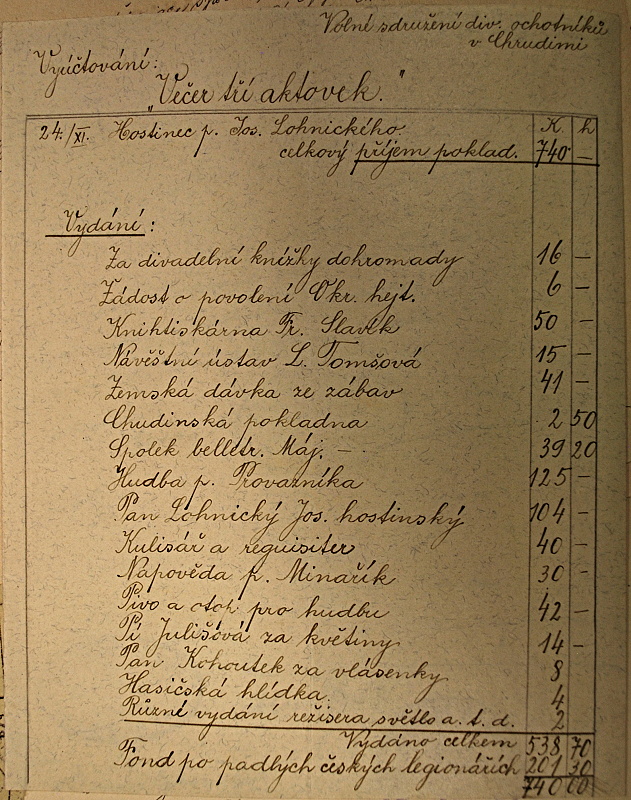 Volné sdružení div. ochotníků
v Chrudimi
Vyúčtování:
"Večer tří aktovek."
K h
24./XI. Hostinec p. Jos. Lohnického
celkový příjem poklad. 740 —
Vydání:
Za divadelní knížky dohromady 16 —
Žádost o povolení Okr. hejt. 6 —
Knihtiskárna Fr. Slavík 50 —
Návěštní ústav L. Tomšová 15 —
Zemská dávka ze zábav 41 —
Chudinská pokladna 2 50
Spolek belletr. Máj. — 39 20
Hudba p. Provazníka 125 —
Pan Lohnický Jos. hostinský 104 —
Kulisář a requisiter 40 —
Nápověda p. Minařík 30 —
Pivo a pro hudbu 42 —
Pí Julišová za květiny 14 —
Pan Kohoutek za vlásenky 8
Hasičská hlídka 4
Různé vydání režisera světlo a. t. d. 2
Vydáno celkem 538 70
Fond po padlých českých legionářích 201 30
740 00